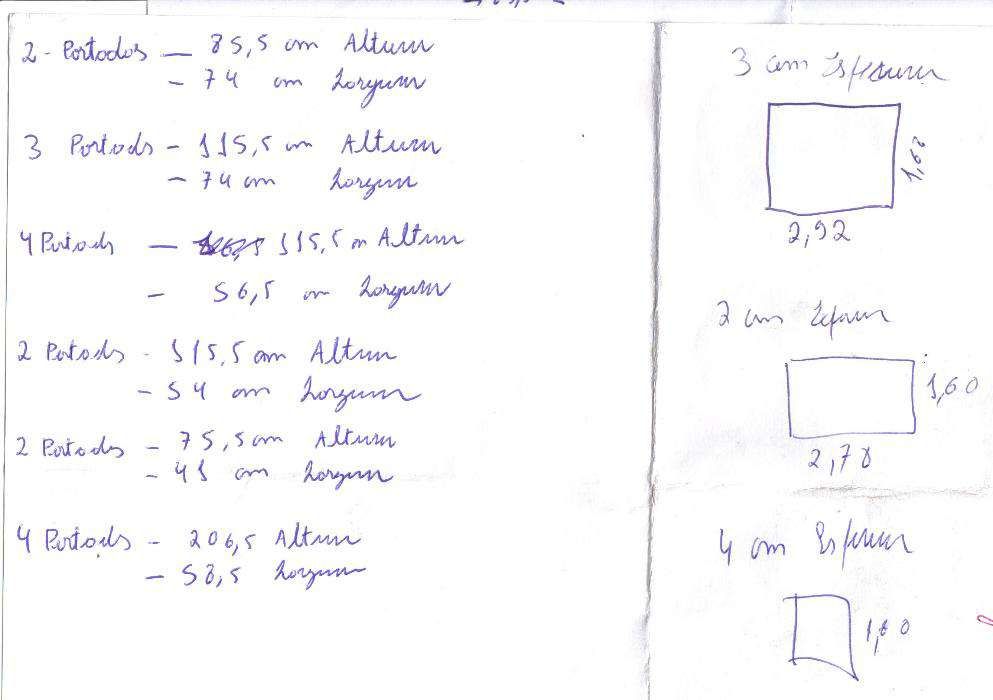 2 - Portados — 85,5 cm Altura
- 74 cm Largura
3 Portads - 115,5 cm Altura
- 74 cm Largura
4 Portads — 115,5 cm Altura
- 56,5 cm Largura
2 Portads - 115,5 cm Altura
- 54 cm Largura
2 Portads - 75,5 cm Altura
- 41 cm Largura
4 Portads - 206,5 Altura
- 58,5 Largura
3 cm Espesura
1,62
2,92
2 cm
1,60
2,78
4 cm Espesura